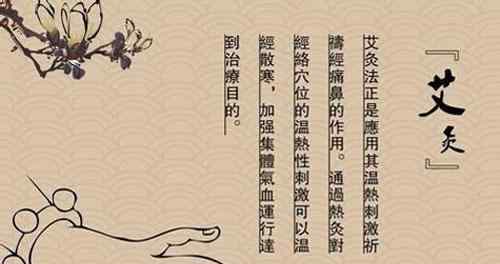 『艾灸』
艾灸法正是應用其溫熱刺激祈
禱經痛鼻的作用。通過熱灸對
經絡穴位的溫熱性刺激可以溫
經散寒，加强集體氣血運行達
到治療目的。